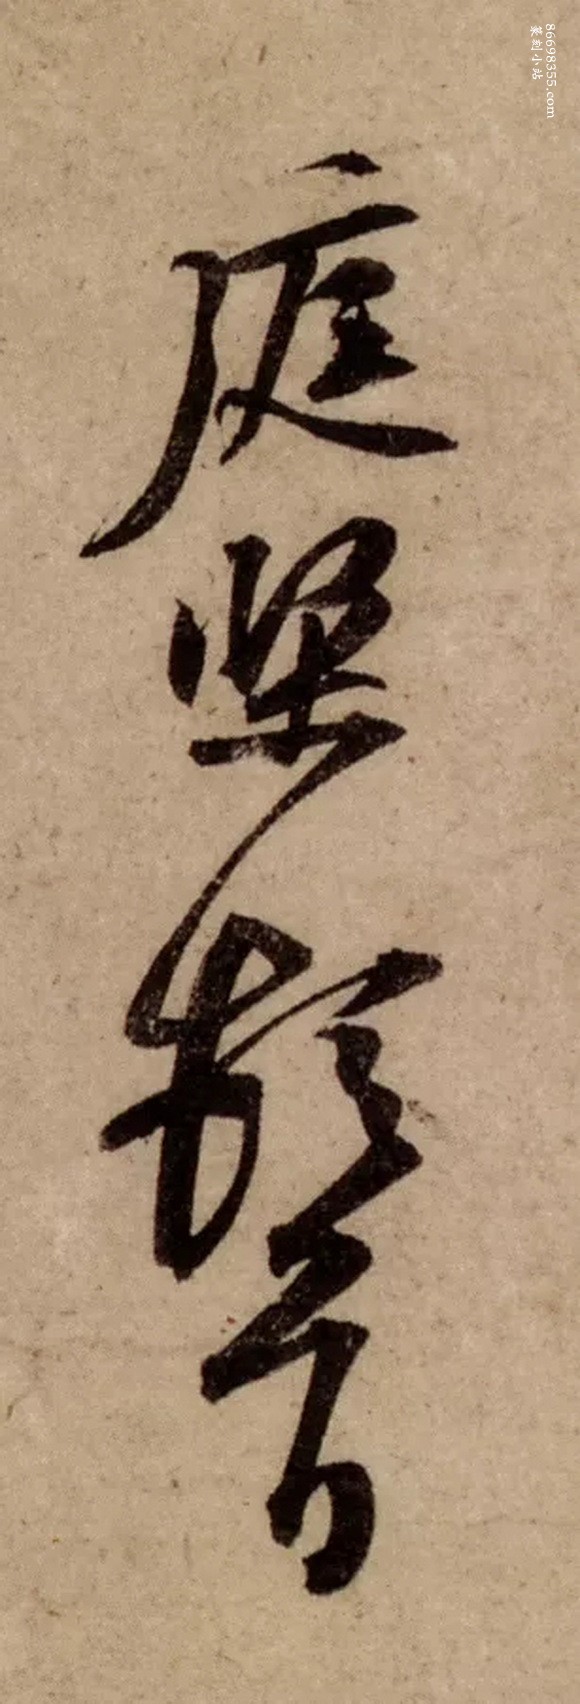 庭堅頓首
86698355.com
篆刻小站